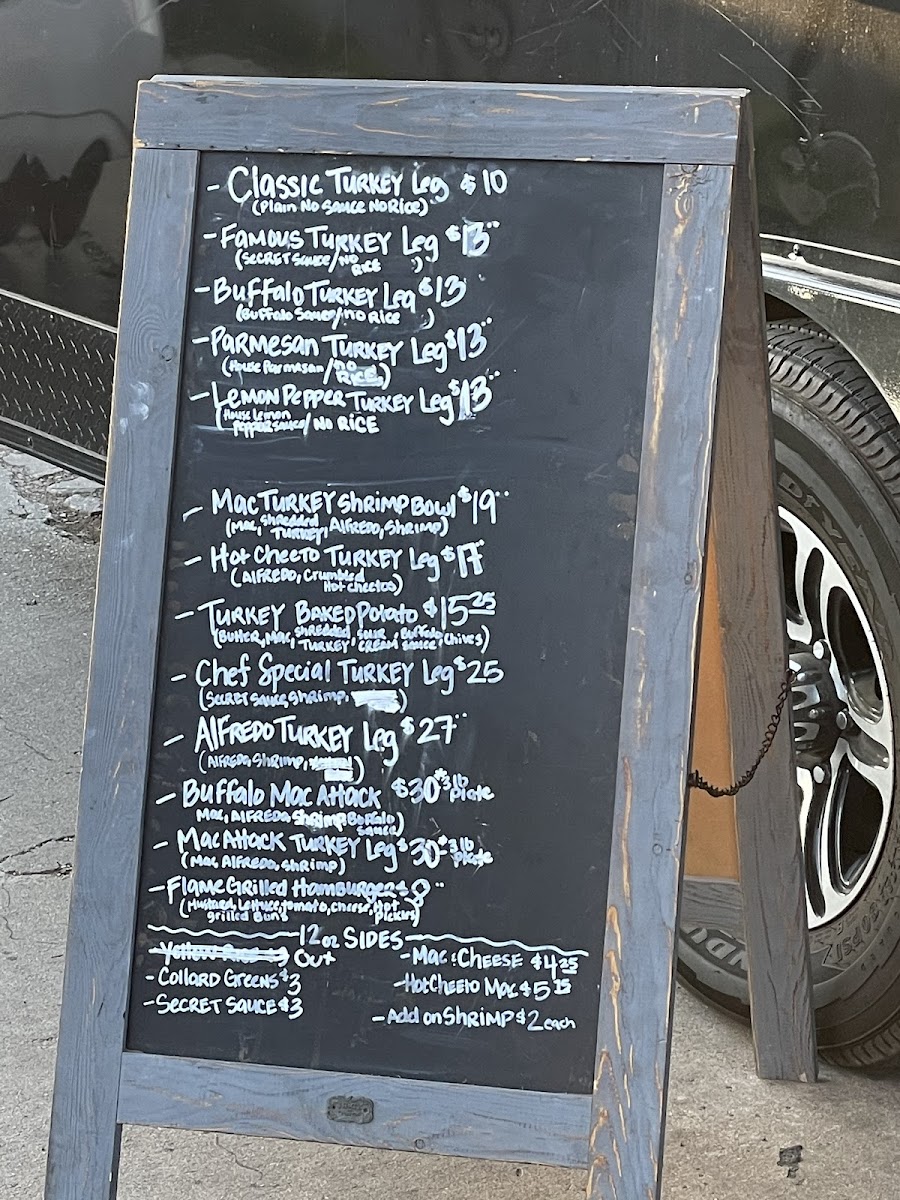 - Classic Turkey Leg $10
(Plain No Sauce No Rice)
- Famous Turkey Leg $13
(Secret Sauce/No Rice)
- Buffalo Turkey Leg $13
(Buffalo Sauce/No Rice)
- Parmesan Turkey Leg $13
(House Parmesan/No Rice)
- Lemon Pepper Turkey Leg $13
(House Lemon Pepper Sauce/No Rice
- Mac Turkey Shrimp Bowl $19
(Mac, Shredded Turkey, Alfredo, Shrimp)
- Hot Cheeto Turkey Leg $17
(Alfredo, Crumbled Hot Cheetos)
- Turkey Baked Potato $15.25
(Butter, Mac, Shredded Turkey, Sour Cream, Buffalo Sauce, Chives)
- Chef Special Turkey Leg $25
(Secret Sauce, Shrimp, )
- Alfredo Turkey Leg $27
(Alfredo, Shrimp, )
- Buffalo Mac Attack $30 *3 lb Plate
Mac, Alfredo Shrimp Buffalo Sauce)
- Mac Attack Turkey Leg $30 - 3 lb Plate
(Mac, Alfredo, Shrimp)
- Flame Grilled Hamburger $8
(Mustard, Lettuce, Tomato, Cheese, Hot Pickles, grilled Buns)
12 oz Sides
Yellow Rice Out
- Collard Greens $3
- Secret Sauce $3
- Mac & Cheese $4.25
- Hot Cheeto Mac $5.75
- Add on Shrimp $2 each